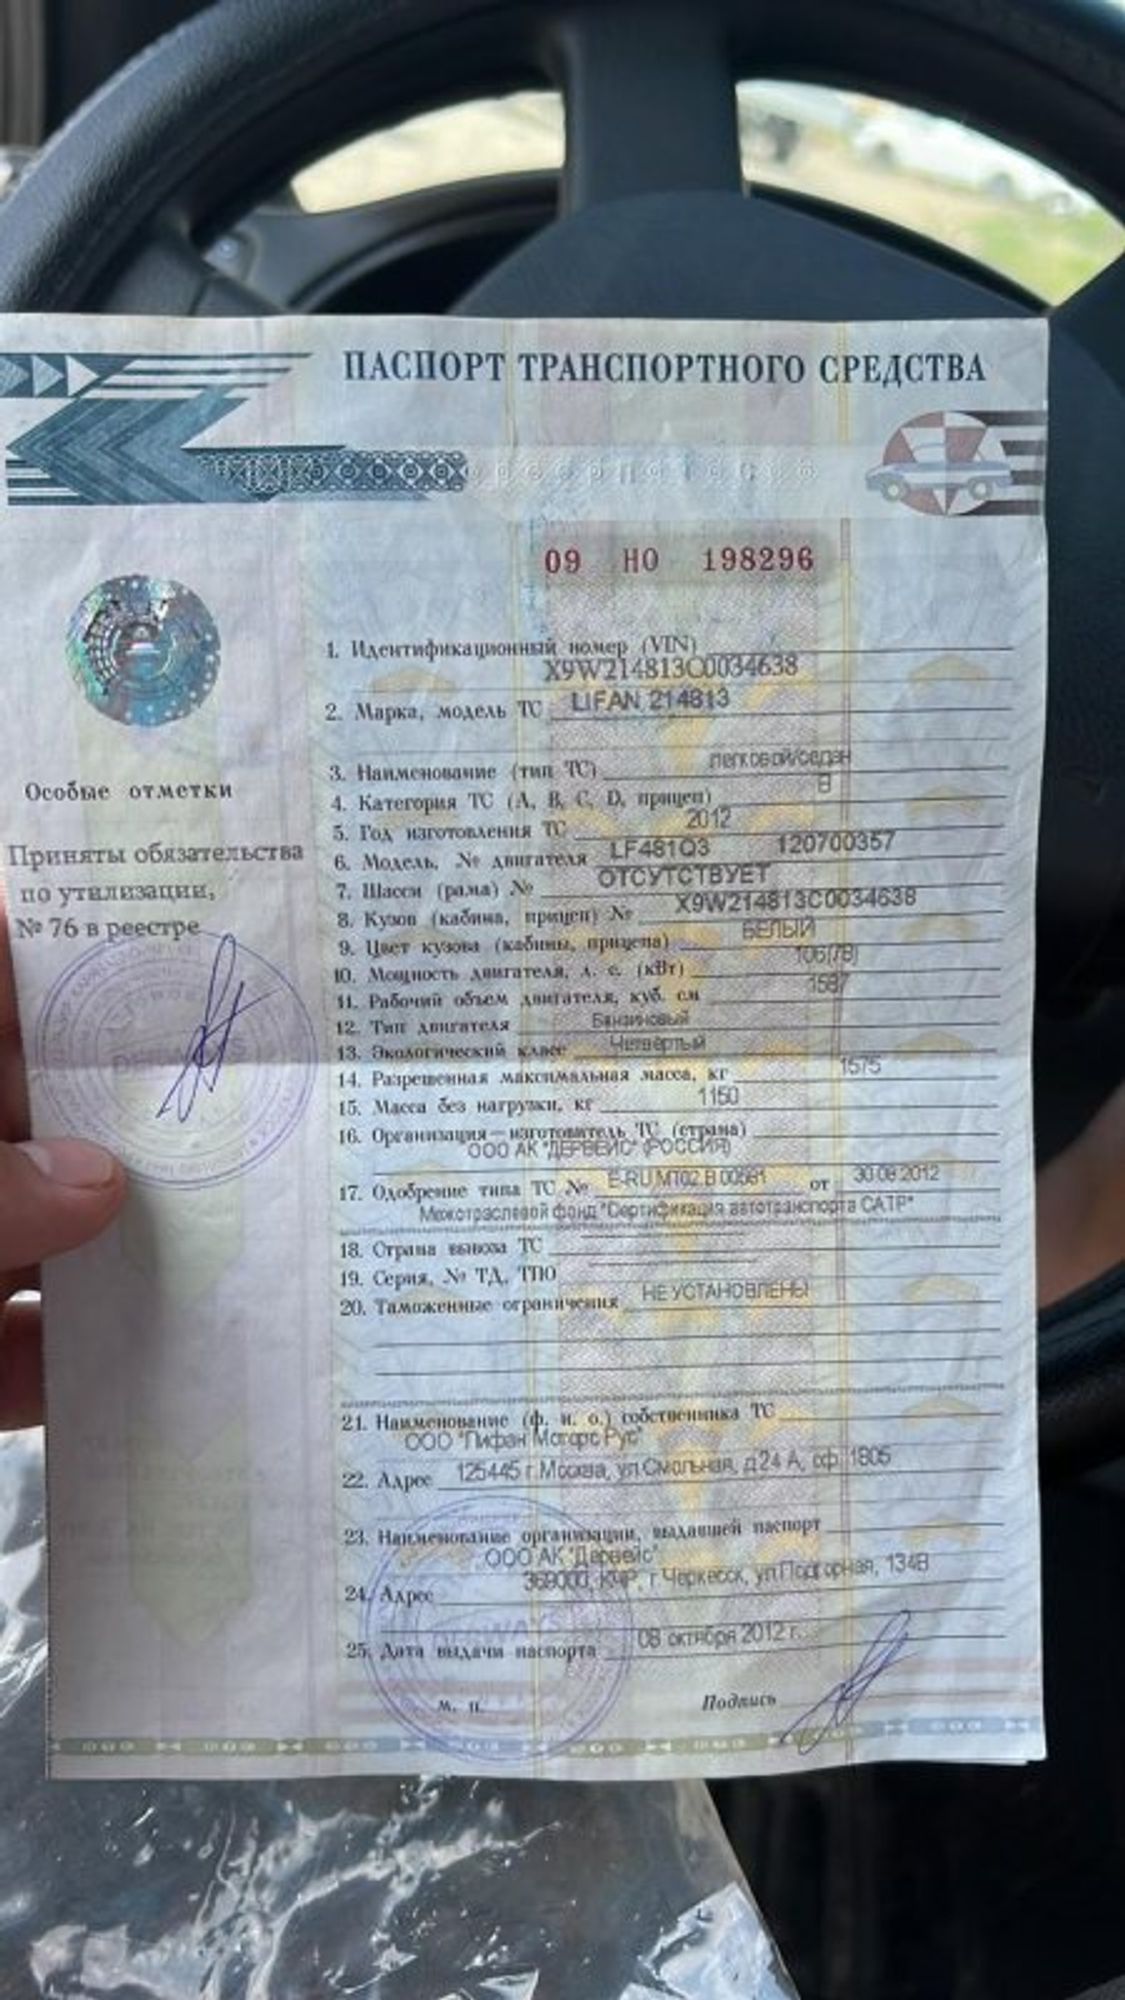 ПАСПОРТ ТРАНСПОРТНОГО СРЕДСТВА
09 НО 198296
1. Идентификационный номер (VIN)
X9W214813C0034638
2. Марка, модель ТС LIFAN 214813
3. Наименование (тип ТС) легковой/седан
4. Категория ТС (A, B, C, D, прицеп) B
5. Год изготовления ТС 2012
6. Модель, № двигателя LF481Q3 120700357
7. Шасси (рама) № ОТСУТСТВУЕТ
8. Кузов (кабина, прицеп) № X9W214813C0034638
9. Цвет кузова (кабины, прицепа) БЕЛЫЙ
10. Мощность двигателя, л. с. (кВт) 106(78)
11. Рабочий объем двигателя, куб. см 1587
12. Тип двигателя Бензиновый
13. Экологический класс Четвертый
14. Разрешенная максимальная масса, кг 1575
15. Масса без нагрузки, кг 1150
16. Организация—изготовитель ТС (страна)
ООО АК "ДЕРВЕЙС" (РОССИЯ)
17. Одобрение типа ТС № E-RU.MT02.B.00591 от 30.08.2012
Межотраслевой фонд "Сертификация автотранспорта САТР"
18. Страна вывоза ТС
19. Серия, № ТД, ТПО
20. Таможенные ограничения НЕ УСТАНОВЛЕНЫ
21. Наименование (ф. и. о.) собственника ТС
ООО "Лифан Моторс Рус"
22. Адрес 125445 г.Москва, ул.Смольная, д.24 А, оф. 1805
23. Наименование организации, выдавшей паспорт
ООО АК "Дервейс"
24. Адрес 369000, КЧР, г.Черкесск, ул.Подгорная, 134В
25. Дата выдачи паспорта 08 октября 2012 г.
м. п. Подпись
Особые отметки
Приняты обязательства
по утилизации,
№ 76 в реестре
DERWAYS
DERWAYS